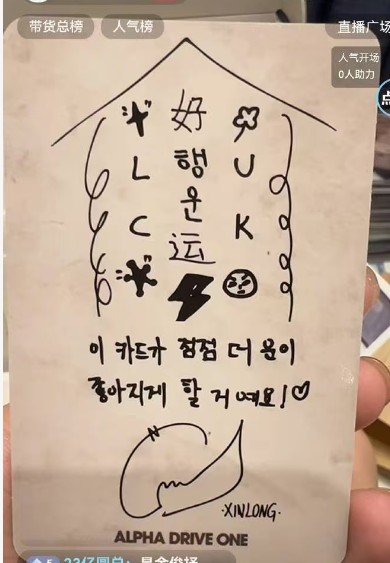 带货总榜 人气榜 直播广场
人气开场
0人助力
点
好
L 행 U
운
C 运 K
이 카드가 점점 더 운이
좋아지게 할 거예요!♡
·XINLONG·
ALPHA DRIVE ONE
5